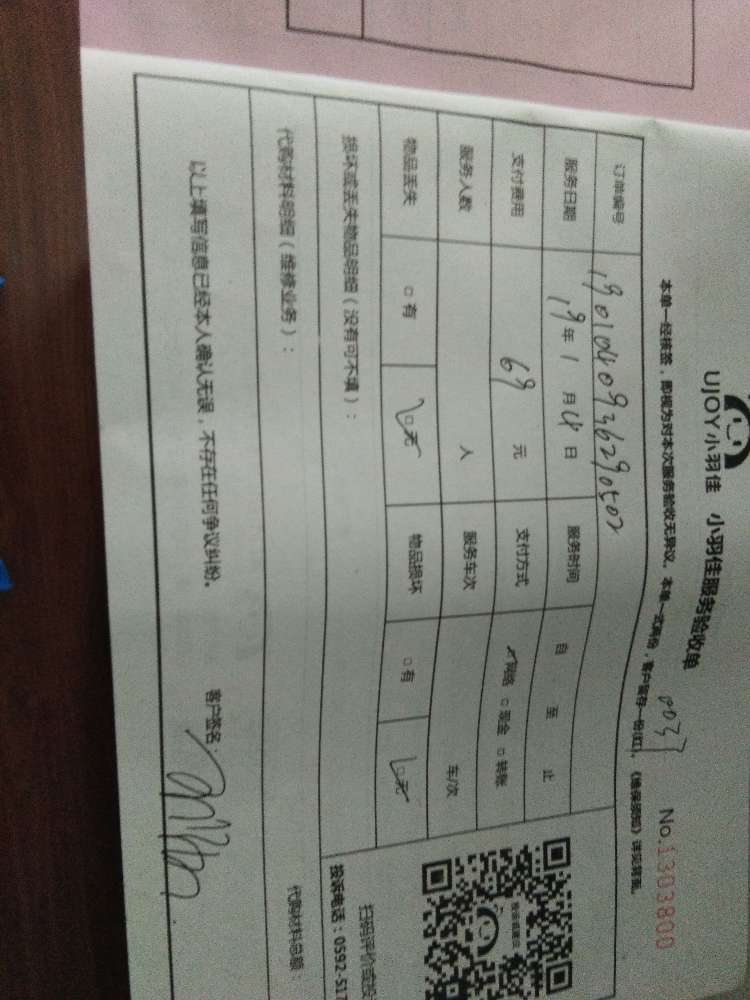 UJOY小羽佳 小羽佳服务验收单
No.1303800
本单一经核签，即视为对本次服务验收无异议。本单一式两份，客户留存一份(红)，《维保须知》详见背面。
订单编号 1901040936290502
服务日期 19年1月4日 服务时间 自 至 止
支付费用 69元 支付方式 ✓网络 □现金 □转账
服务人数 人 服务车次 车/次
物品丢失 □有 ☑无 物品损坏 □有 ☑无
损坏或丢失物品明细（没有可不填）：
代购材料明细（维修业务）：
代购材料总额：
以上填写信息已经本人确认无误，不存在任何争议纠纷。
客户签名：
扫码评价或投
投诉电话：0592-517